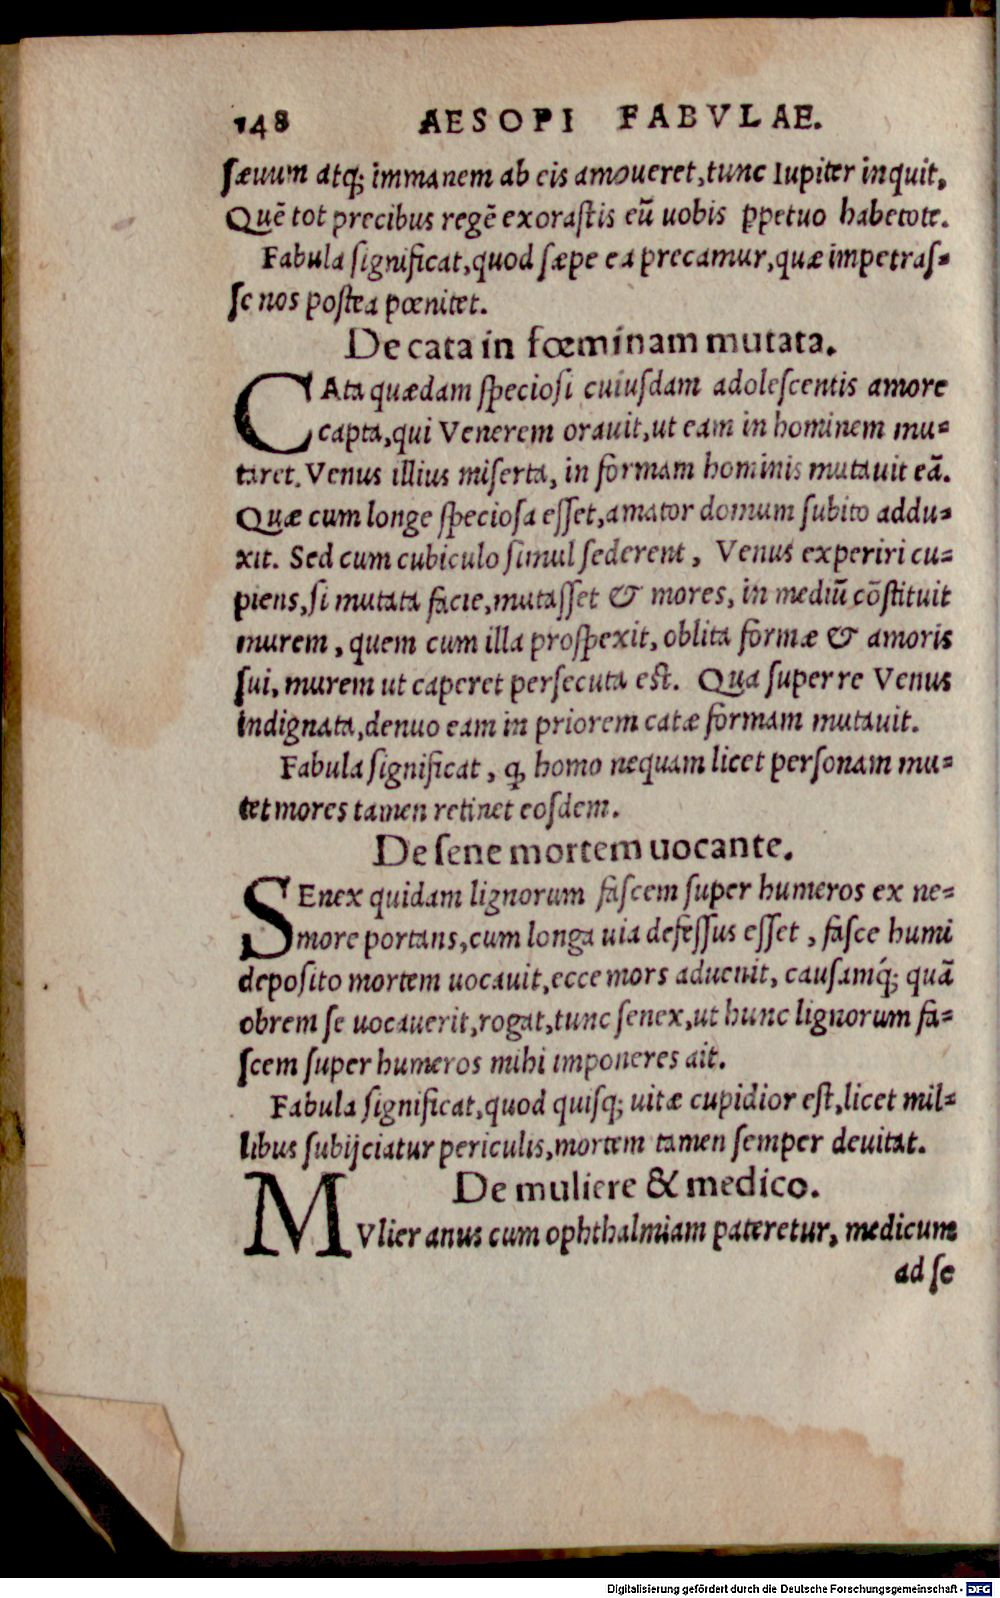 148 AESOPI FABVLAE.
sæuum atq; immanem ab eis amoueret, tunc Iupiter inquit,
Quē tot precibus regē exorastis eū uobis ꝑpetuo habetote.
Fabula significat, quod sæpe ea precamur, quæ impetras-
se nos postea pœnitet.
De cata in fœminam mutata.
CAta quædam speciosi cuiusdam adolescentis amore
capta, qui Venerem orauit, ut eam in hominem mu-
taret. Venus illius miserta, in formam hominis mutauit eā.
Quæ cum longe speciosa esset, amator domum subito addu-
xit. Sed cum cubiculo simul sederent, Venus experiri cu-
piens, si mutata facie, mutasset & mores, in mediū cōstituit
murem, quem cum illa prospexit, oblita formæ & amoris
sui, murem ut caperet persecuta est. Qua super re Venus
indignata, denuo eam in priorem catæ formam mutauit.
Fabula significat, ꝙ homo nequam licet personam mu-
tet mores tamen retinet eosdem.
De sene mortem uocante.
SEnex quidam lignorum fascem super humeros ex ne-
more portans, cum longa uia defessus esset, fasce humi
deposito mortem uocauit, ecce mors aduenit, causamq́; quā
obrem se uocauerit, rogat, tunc senex, ut hunc lignorum fa-
scem super humeros mihi imponeres ait.
Fabula significat, quod quisq; uitæ cupidior est, licet mil-
libus subijciatur periculis, mortem tamen semper deuitat.
De muliere & medico.
MVlier anus cum ophthalmiam pateretur, medicum
ad se
Digitalisierung gefördert durch die Deutsche Forschungsgemeinschaft - DFG